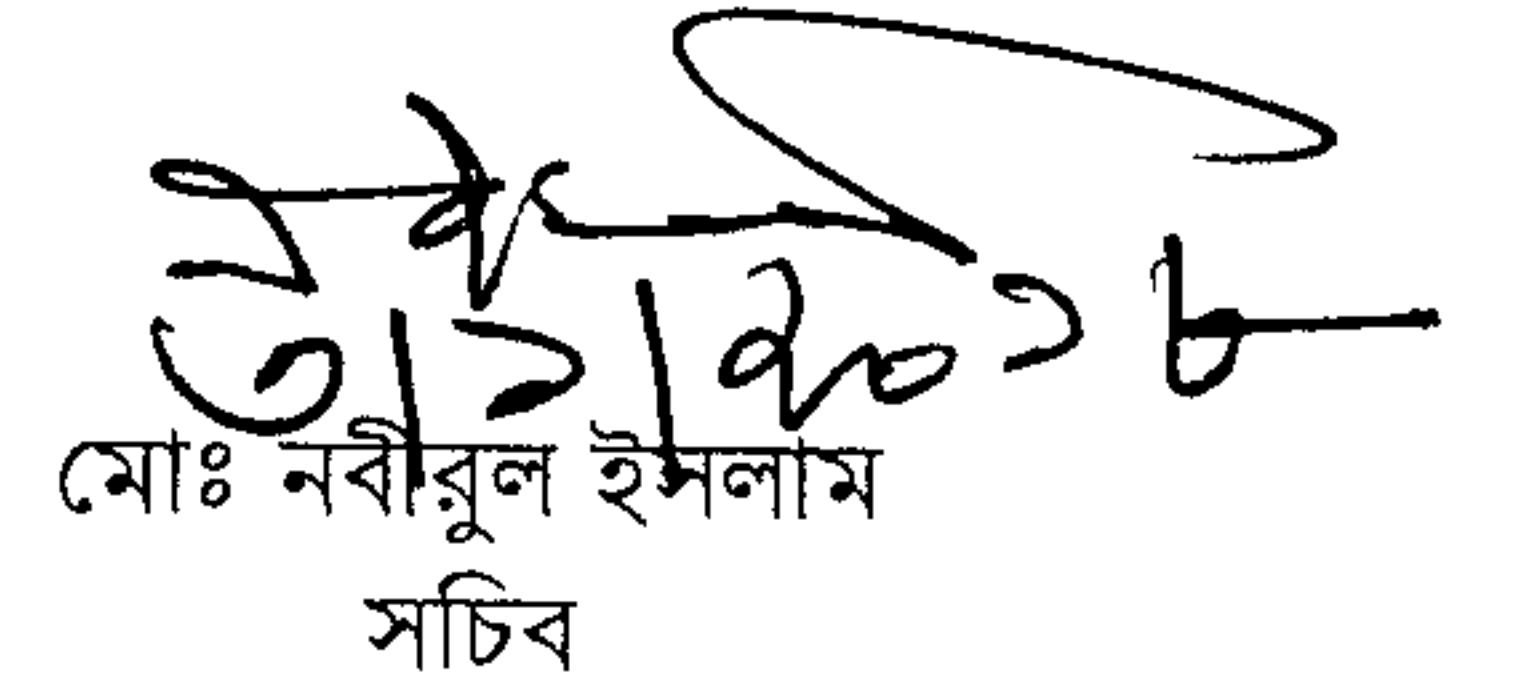 ৩।১।২০১৮
মোঃ নবীরুল ইসলাম
সচিব